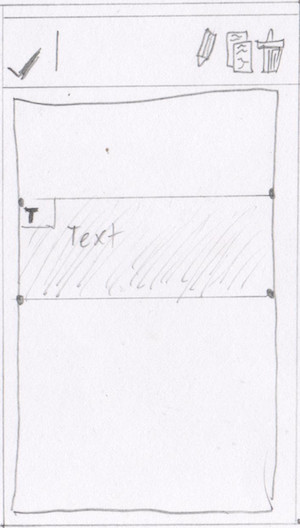 T
Text